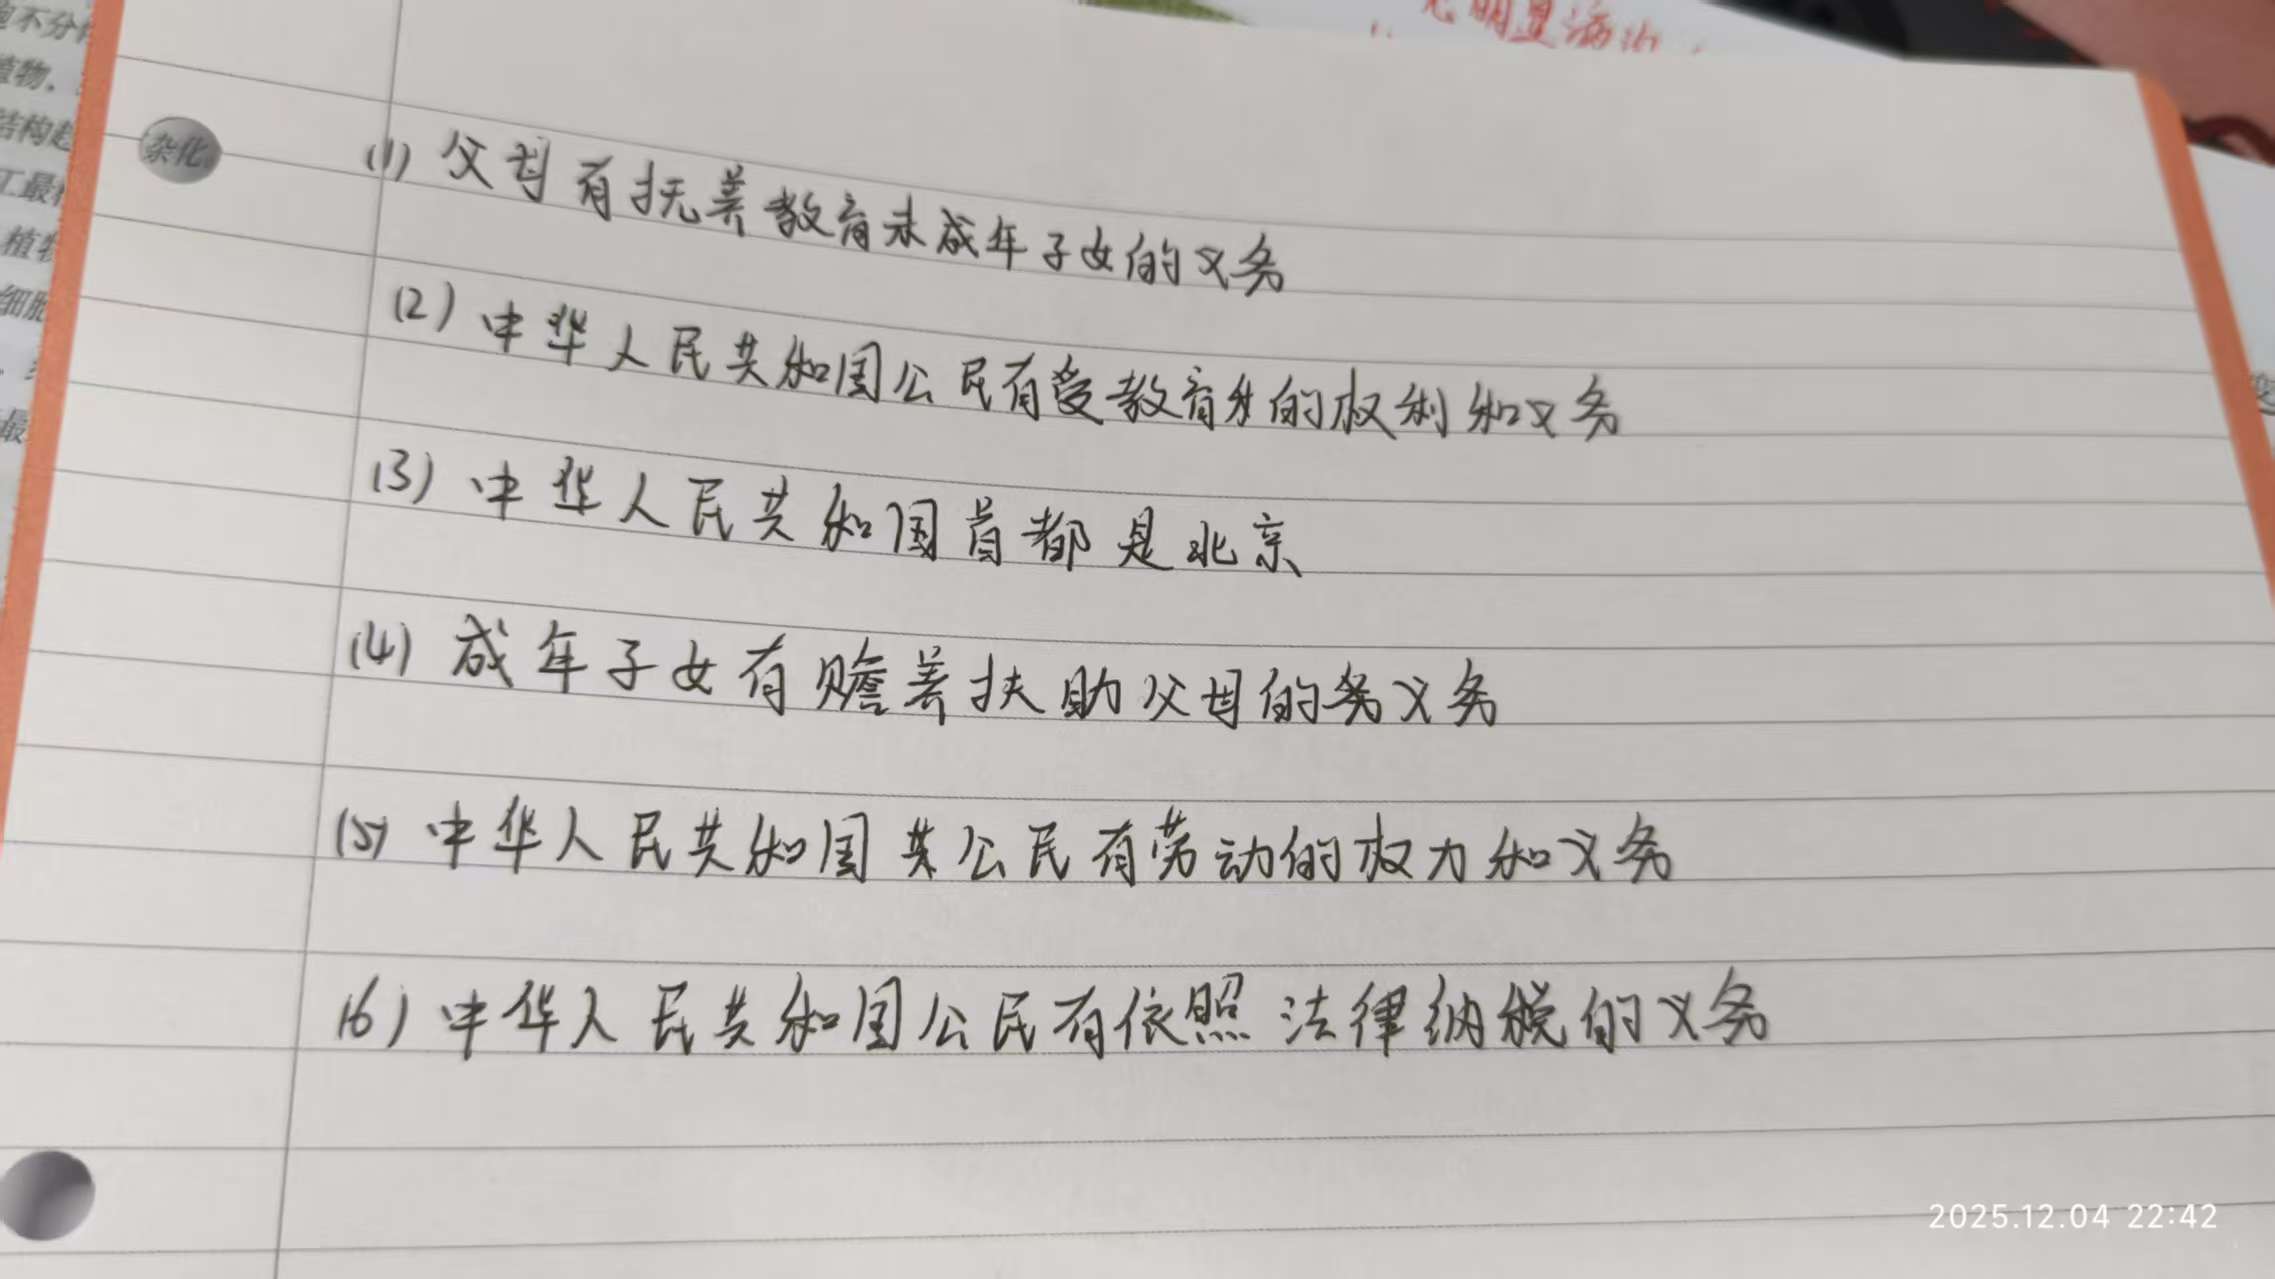 无明显病
杂化
(1) 父母有抚养教育未成年子女的义务
(2) 中华人民共和国公民有受教育的权利和义务
(3) 中华人民共和国首都是北京
(4) 成年子女有赡养扶助父母的务义务
(5) 中华人民共和国共公民有劳动的权力和义务
(6) 中华人民共和国公民有依照法律纳税的义务
植物
结构
工最
植物
细胞
最
2025.12.04 22:42